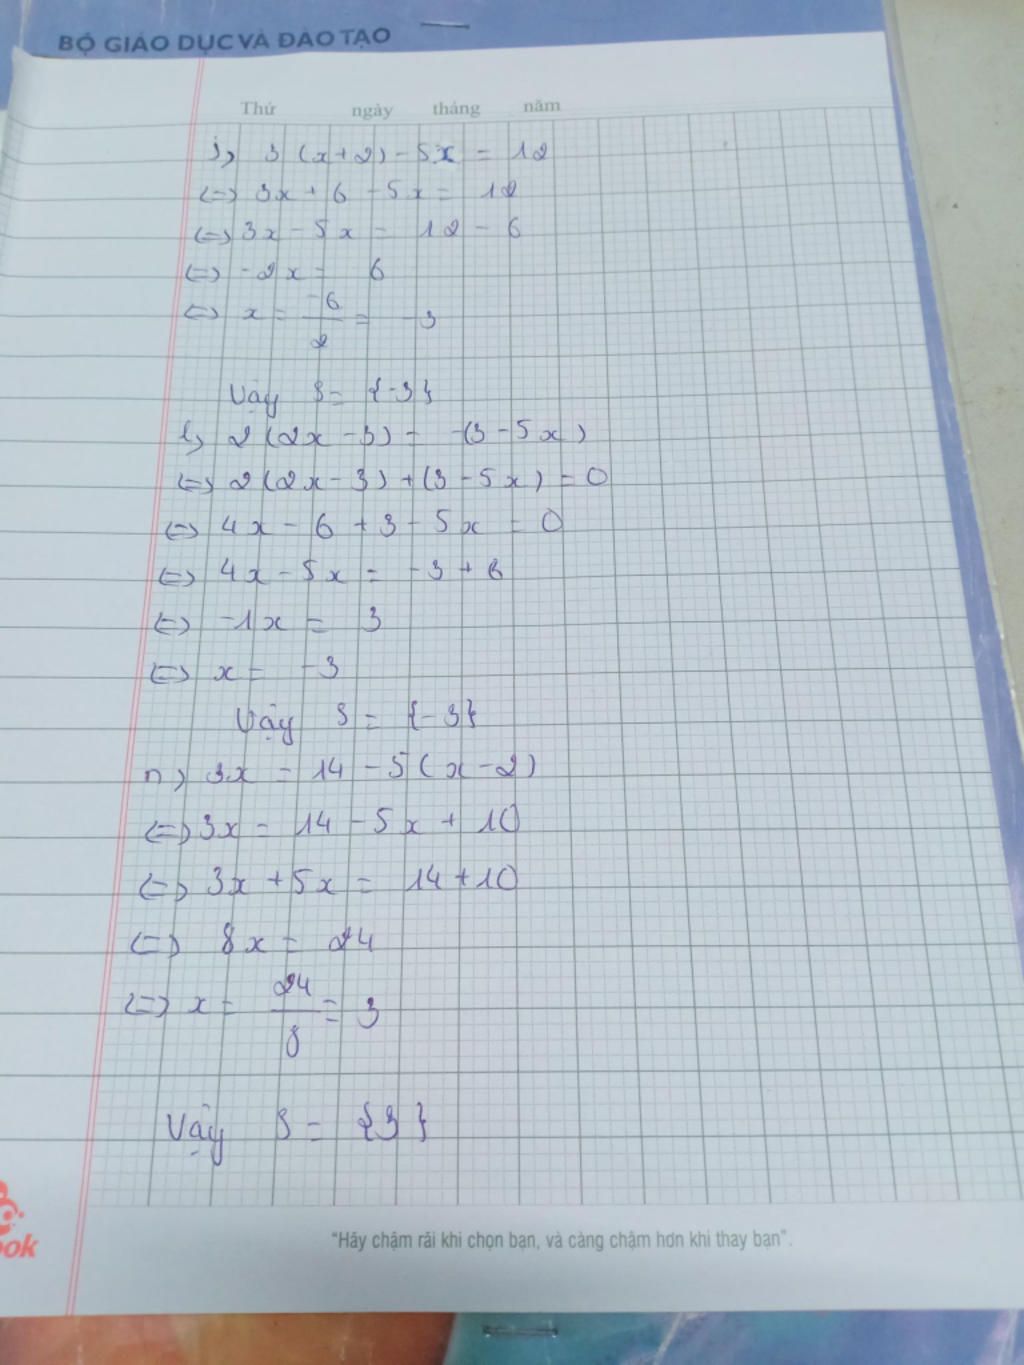 BỘ GIÁO DỤC VÀ ĐÀO TẠO
Thứ ngày tháng năm
j, 3 (x+2) - 5x = 12
<=> 3x + 6 - 5x = 12
<=> 3x - 5x = 12 - 6
<=> -2x = 6
<=> x = -6/2 = -3
Vậy S = {-3}
l, 2(2x - 3) = -(3 - 5x)
<=> 2(2x - 3) + (3 - 5x) = 0
<=> 4x - 6 + 3 - 5x = 0
<=> 4x - 5x = -3 + 6
<=> -1x = 3
<=> x = -3
Vậy S = {-3}
n, 3x = 14 - 5(x - 2)
<=> 3x = 14 - 5x + 10
<=> 3x + 5x = 14 + 10
<=> 8x = 24
<=> x = 24/8 = 3
Vậy S = {3}
"Hãy chậm rãi khi chọn bạn, và càng chậm hơn khi thay bạn".
ook